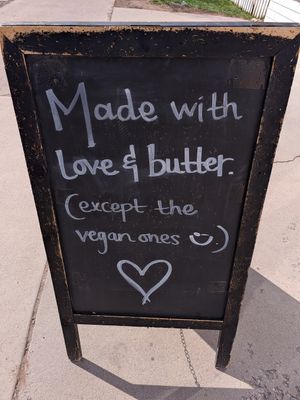 Made with
love & butter.
(except the
vegan ones.)